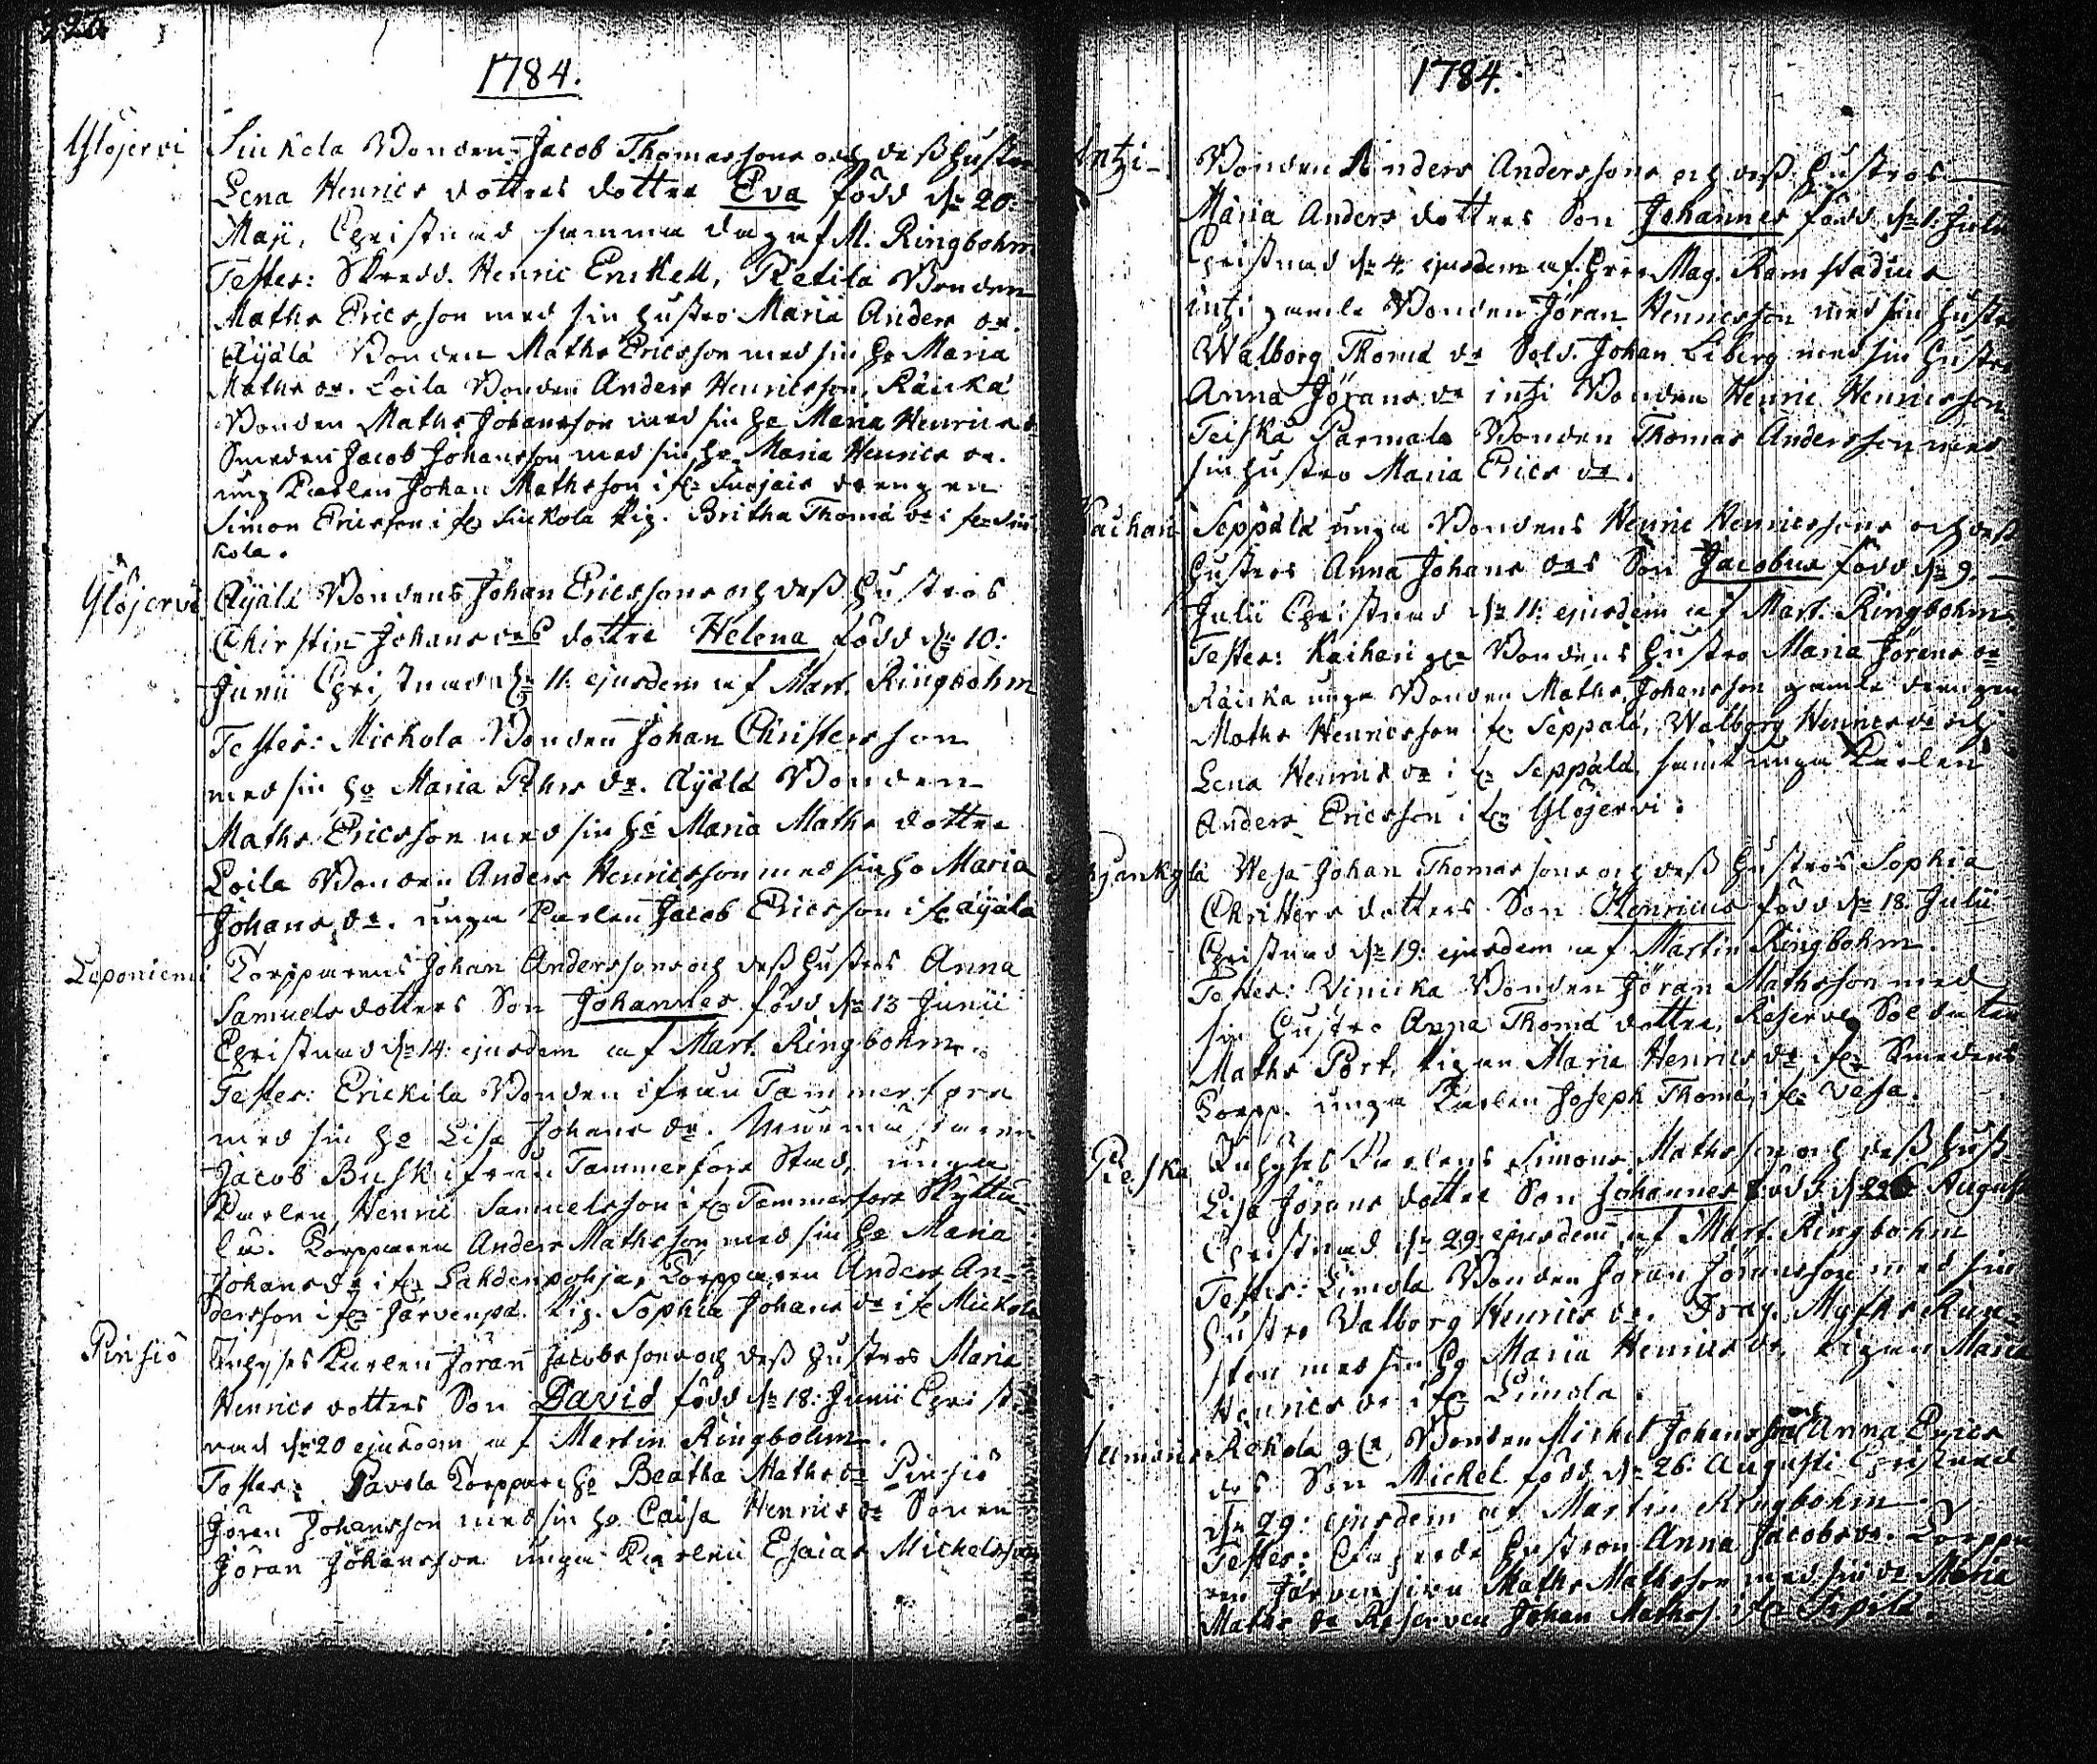 1784.
Ylöjervi Siukola Bonden Jacob Thomassons och dess hustru
Lena Henrics dotters dotter Eva född d. 20.
Maji, Christnad samma dag af M. Ringbohm
Testes: Skredd. Henric Enckell, Retila Bonden
Maths Ericsson med sin hustro Maria Anders dr.
Äyälä Bonden Maths Ericsson med sin ho Maria
Maths dr. Loila Bonden Anders Henricsson, Räickä
Bonden Maths Johansson med sin ho Maria Henrics dr
Smeden Jacob Johansson med sin ho Maria Henrics dr.
ung Karlen Johan Mathsson i fr. drengen
Simon Ericsson i fr Siukola Pig. Britha Thomæ dr i fr Siu
kola.
Ylöjervi Äyälä Bondens Johan Ericssons och dess hustros
Chirstin Johans drs dotter Helena född d. 10:
Junii Christnad d. 11. ejusdem af Mart. Ringbohm
Testes: Mickola Bonden Johan Christersson
med sin ho Maria Pehrs dr. Äyälä Bonden
Maths Ericsson med sin ho Maria Maths dotter
Loila Bonden Anders Henricsson med sin ho Maria
Johans dr. unga Karlen Jacob Ericsson i fr äyälä
Leponiemi Torpparens Johan Anderssons och dess hustros Anna
Samuelsdotters Son Johannes född d. 13 Junii
Christnad d. 14: ejusdem af Mart. Ringbohm.
Testes: Erickila Bonden ifrån Tammerfors
med sin ho Lisa Johans dr. Murmästaren
Jacob Busk ifrån Tammerfors Stad, unga
Karlen Henric Samuelsson i fr Tammerfors Skyttä
lä. Torpparen Anders Mathsson med sin ho Maria
Johans dr i fr Lahdenpohja, Torpparen Anders An-
dersson i fr Järvenpä. Pig. Sophia Johans dr i fr Mickola
Pinsiö Inhyses Karlen Jöran Jacobssons och dess hustros Maria
Henrics dotters Son David född d. 18: Junii Christ
nad d. 20 ejusdem af Martin Ringbohm.
Testes: Pavola Torppar ho Beatha Maths dr Pinsiö
Göran Johansson med sin ho Caisa Henrics dr Sonen
Jöran Johansson unga Karlen Esaias Michelsson
1784.
Intzi- Bonden Anders Anderssons och dess hustros
Maria Anders dotters Son Johannes född d. 1. Julii
Christnad d. 4. ejusdem af Herr Mag. Ramstadius
intzi gamle Bonden Jöran Henricsson med sin hustro
Walborg Thomæ dr Sold. Johan Liberg med sin hustro
Anna Jörans dr intzi Bonden Henric Henricsson
Teiska Parmala Bonden Thomas Andersson med
sin hustro Maria Erics dr.
Kaihari Seppälä unga Bondens Henric Henricssons och dess
hustros Anna Johans drs Son Jacobus född d. 9.
Julii Christnad d. 11. ejusdem af Mart. Ringbohm
Testes: Kaihari gla Bondens hustro Maria Jörans dr
Räicka unga Bonden Maths Johansson gamla drengen
Maths Henricsson i fr Seppälä, Walborg Henrics dr och
Lena Henrics dr i fr Seppälä, samt unga Karlen
Anders Ericsson i fr Ylöjervi.
Pohjankylä Wesa Johan Thomassons och dess hustros Sophia
Christers dotters Son Henricus född d. 18. Julii
Christnad d. 19: ejusdem af Martin Ringbohm.
Testes: Vinicka Bonden Jöran Mathsson med
sin hustro Anna Thomæ dotter, Reserve Soldaten
Maths Port, Pigan Maria Henrics dr i fr Smedens
Torpp. unga Karlen Joseph Thomæ, i fr Vesa.
Peiska Inhyses Karlens Simons Mathsson och dess hust
Lisa Jörans dotter Son Johannes född d. 26 Augusti
Christnad d. 29. ejusdem af Mart. Ringbohm
Testes: Limola Bonden Jöran Jöransson med sin
hustro Valborg Henrics dr. Drag. Maths Run
sten med sin ho Maria Henrics dr, pigan Maria
Henrics dr i fr Limola.
Kekola gla Bonden Michel Johansson Anna Erics
drs Son Mickel född d. 26. Augusti Christnad
d. 29. ejusdem af Martin Ringbohm
Testes: hustron Anna Jacobs dr. Torppa
ren Maths Mathsson med sin ho Maria
Maths dr Reserven Johan Maths. i fr